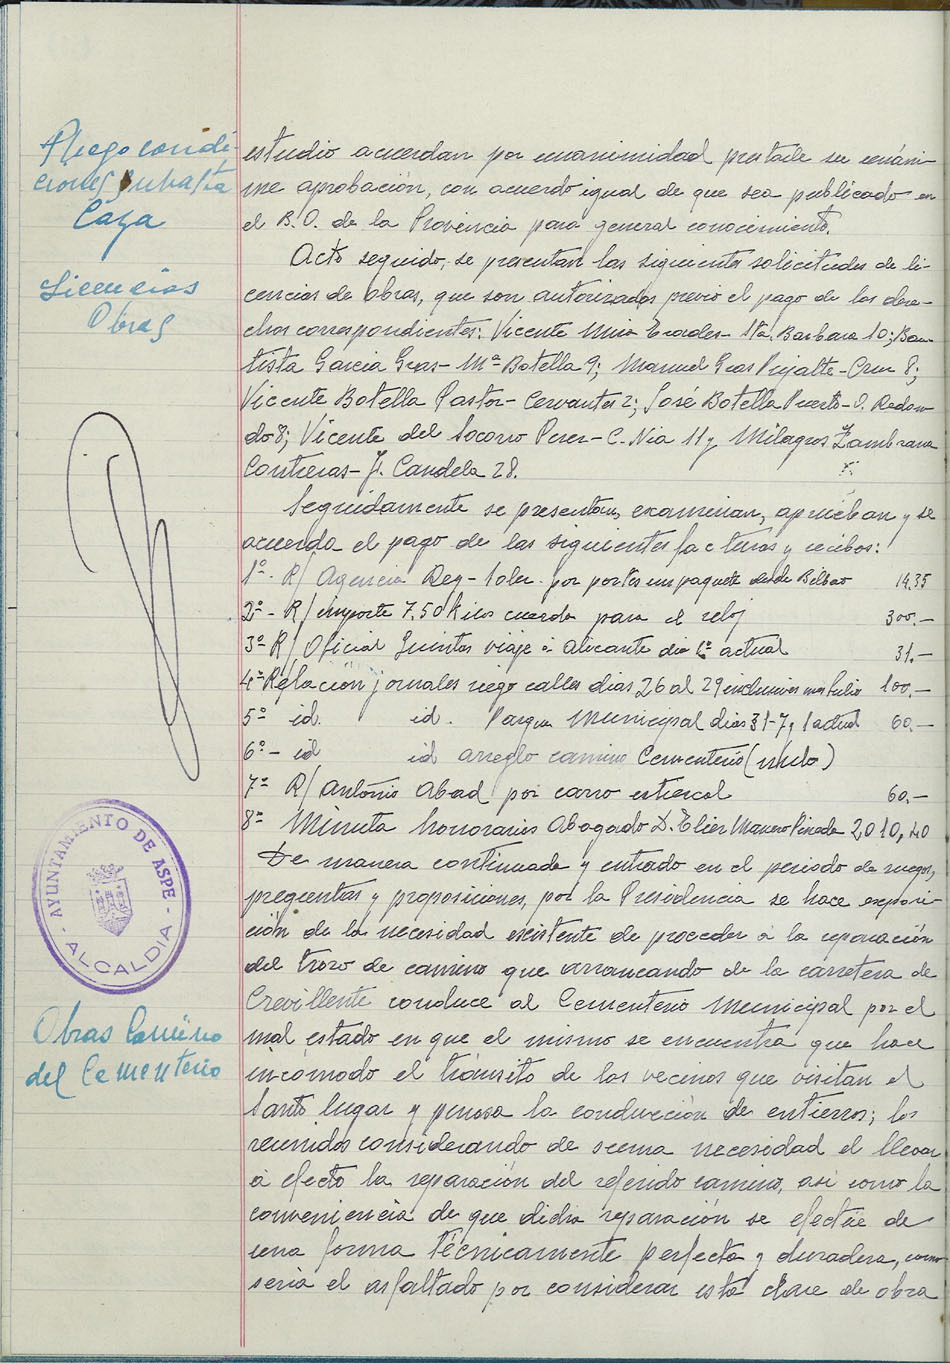 Pliego condi-
ciones subasta
Caza
estudio acuerdan por unanimidad prestale su unáni-
me aprobación, con acuerdo igual de que sea publicado en
el B.O. de la Provincia para general conocimiento.
Licencias
Obras
Acto seguido, se presentan las siguientes solicitudes de li-
cencias de obras, que son autorizadas previo el pago de los dere-
chos correspondientes: Vicente Mira Erades - Sta. Barbara 10; Bau-
tista Garcia Gras - Mª Botella 9; Manuel Gras Pujalte - Cruz 8;
Vicente Botella Pastor - Cervantes 2; José Botella Puerto - D. Redon-
do 8; Vicente del Socorro Perez - C. Nia 11 y Milagros Zambrana
Contreras - J. Candela 28.
Seguidamente se presentan, examinan, aprueban y se
acuerda el pago de las siguientes facturas y recibos:
1º - R/ Agencia Rey - Soler por portes un paquete desde Bilbao 14,35
2º - R/ importe 7,50 kilos cuerda para el reloj 300.-
3º R/ Oficial Quintas viaje a Alicante dia 1º actual 31.-
4º Relación jornales riego calles dias 26 al 29 inclusives mes Julio 100.-
5º id. id. Parque Municipal dias 31-7 y 1 actual 60.-
6º - id id arreglo camino Cementerio (nulo)
7º R/ Antonio Abad por carro estiercol 60.-
8º Minuta honorarios Abogado D. Elier Manero Pineda 2010,40
AYUNTAMIENTO DE ASPE
- ALCALDIA -
De manera continuada y entrado en el periodo de ruegos,
preguntas y proposiciones, por la Presidencia se hace exposi-
ción de la necesidad existente de proceder a la reparación
del trozo de camino que arrancando de la carretera de
Crevillente conduce al Cementerio Municipal por el
Obras Camino
del Cementerio
mal estado en que el mismo se encuentra que hace
incómodo el tránsito de los vecinos que visitan el
Santo lugar y penosa la conducción de entierros; los
reunidos considerando de suma necesidad el llevar
a efecto la reparación del referido camino, asi como la
conveniencia de que dicha reparación se efectúe de
una forma técnicamente perfecta y duradera, como
seria el asfaltado por considerar esta clase de obra